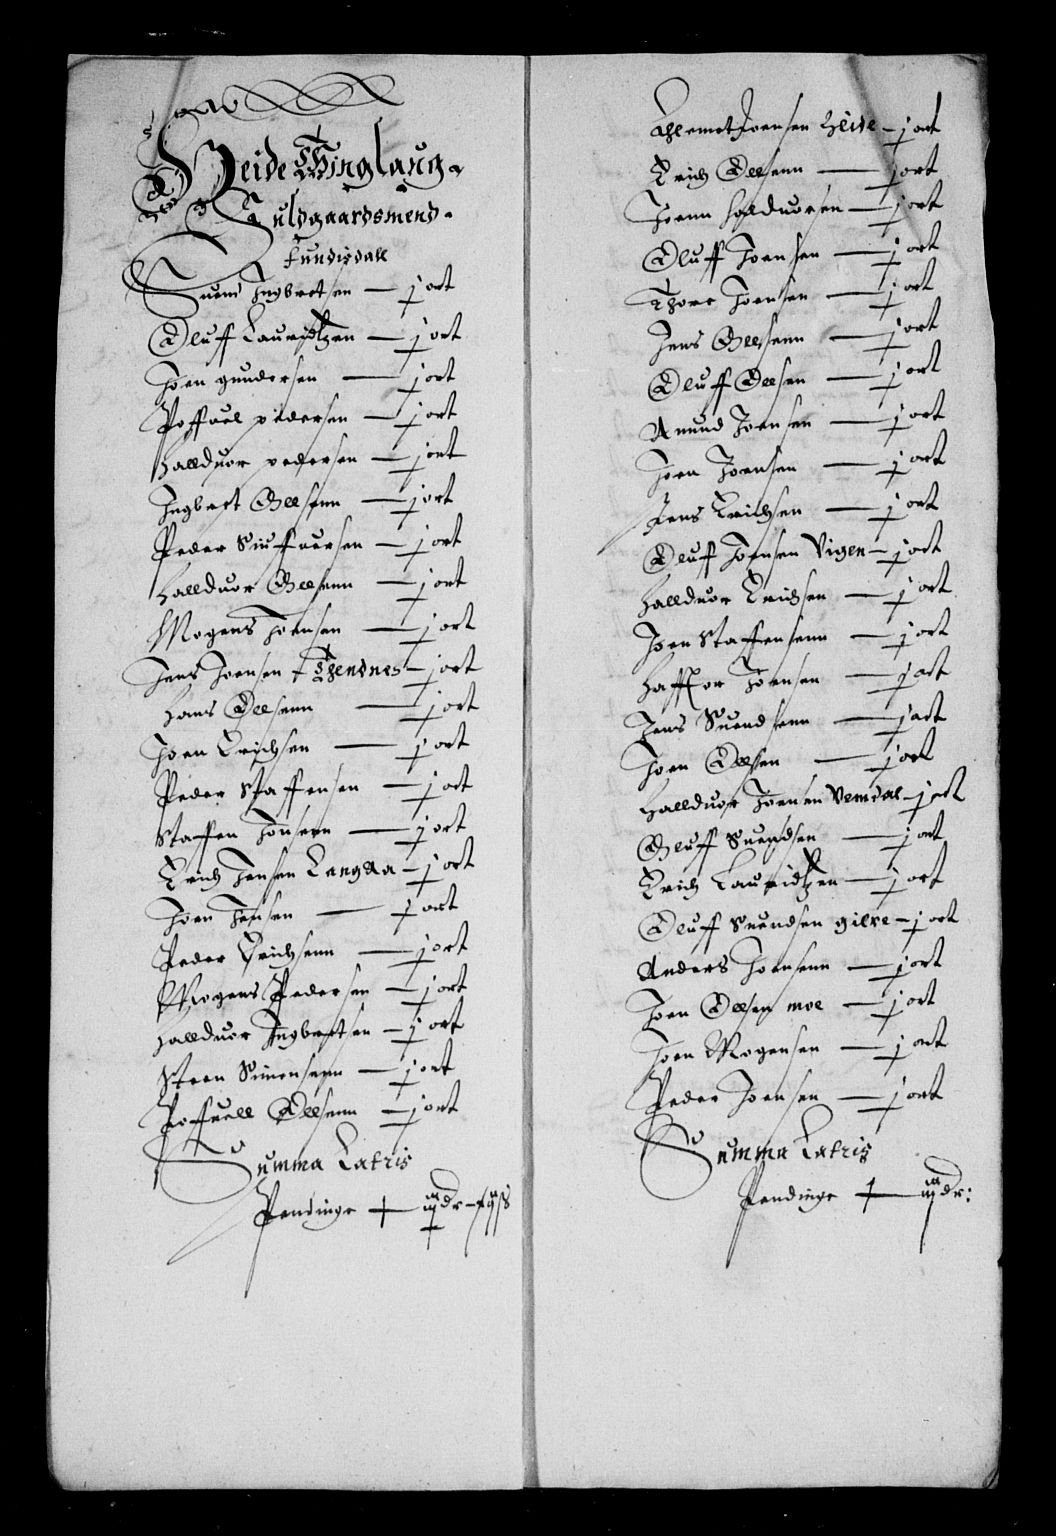 Heide Thinglaug
Fuldgaardsmend.
Fundisdall
Suend Ingbretsen — j ort
Oluff Lauridtzen — j ort
Joen gundersen — j ort
Poffuel pedersen — j ort
Hallduor pedersen — j ort
Ingbret Ollsenn — j ort
Peder Siuffuersen — j ort
Hallduor Ollsenn — j ort
Mogens Joensen — j ort
Jens Joensen Thendnes — j ort
Hans Ollsenn — j ort
Joen Erichsen — j ort
Peder Staffensen — j ort
Staffen Jonsenn — j ort
Erich Jensen Langaa — j ort
Joen Jensen — j ort
Peder Erichsenn — j ort
Mogens Pedersen — j ort
Hallduor Ingbretsen — j ort
Steen Simensenn — j ort
Poffuell Ollsenn — j ort
Summa Latris
Pendinge
Joensen Heide — j ort
Erich Ollsenn — j ort
Joenn Halduorsen — j ort
Oluff Joensen — j ort
Thore Joensen — j ort
Jens Ollsenn — j ort
Oluff Olsen — j ort
Amund Joensen — j ort
Joen Joensen — j ort
Jens Erichsen — j ort
Oluff Joensen Vigen — j ort
Hallduor Erichsen — j ort
Joen Staffensenn — j ort
Hafftor Joensen — j ort
Jens Suendsenn — j ort
Joen Ollsen — j ort
Hallduor Joensen Vemdal — j ort
Oluff Suendsen — j ort
Erich Lauridtzen — j ort
Oluff Suendsen gilre — j ort
Anders Joensenn — j ort
Joen Ollsen moe — j ort
Joen Mogensen — j ort
Peder Joensen — j ort
Summa Latris
Pendinge